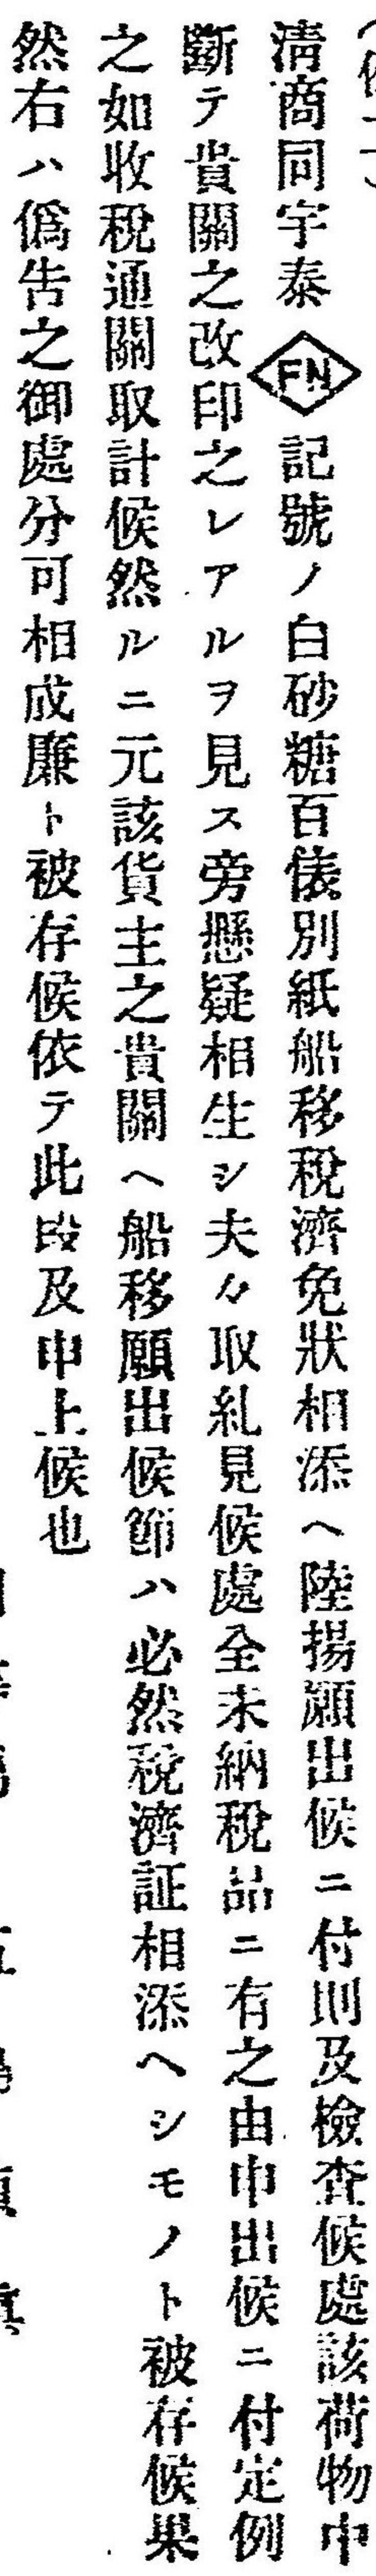 清商同宇泰 FN 記號ノ白砂糖百俵別紙船移稅濟免狀相添ヘ陸揚願出候ニ付則及檢査候處該荷物中
斷テ貴關之改印之レアルヲ見ス旁懸疑相生シ夫々取糺見候處全未納稅品ニ有之由申出候ニ付定例
之如收稅通關取計候然ルニ元該貨主之貴關ヘ船移願出候節ハ必然稅濟証相添ヘシモノト被存候果
然右ハ僞告之御處分可相成廉ト被存候依テ此段及申上候也